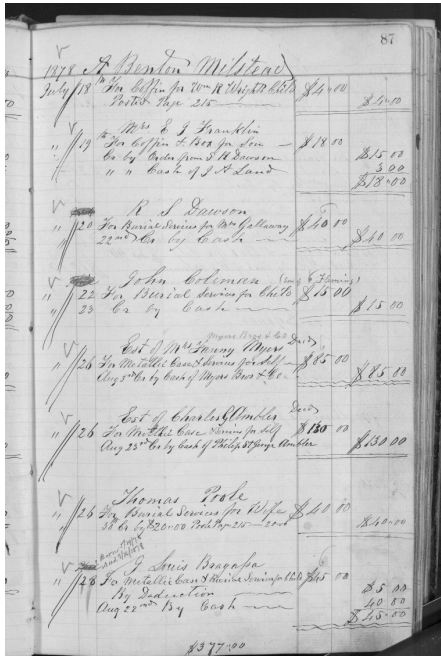 87
1878 A Benton Milstead
July 18th For Coffin for Wm R Wright Child $4.00
Posted Page 215 $4.00
Mrs E J Franklin
" 19th For Coffin & Box for Son $18.00
Cr by Order from S R Dawson $15.00
" " Cash of J N Land 3.00
$18.00
R S Dawson
" 20 For Burial Services for Mrs Gallaway $40.00
22nd Cr by Cash $40.00
John Coleman
" 22 For Burial Services for Child $15.00
" 23 Cr by Cash $15.00
Myers Bros & Co
Est of Mrs Fanny Myers Decd
" 26 For Metallic Case & Services for Self $85.00
Aug 5th Cr by Cash of Myers Bros & Co $85.00
Est of Charles J Ambler Decd
" 26 For Metallic Case & Services for Self $130.00
Aug 23rd Cr by Cash of Philip St George Ambler $130.00
Thomas Poole
" 26 For Burial Services for Wife $40.00
Cr by $20.00 Post Page 215 20.00 $40.00
J Louis Bragassa
" 28 To Metallic Case & Burial Services for Child $45.00
By Deduction $5.00
Aug 22nd By Cash 40.00
$45.00
$377.00